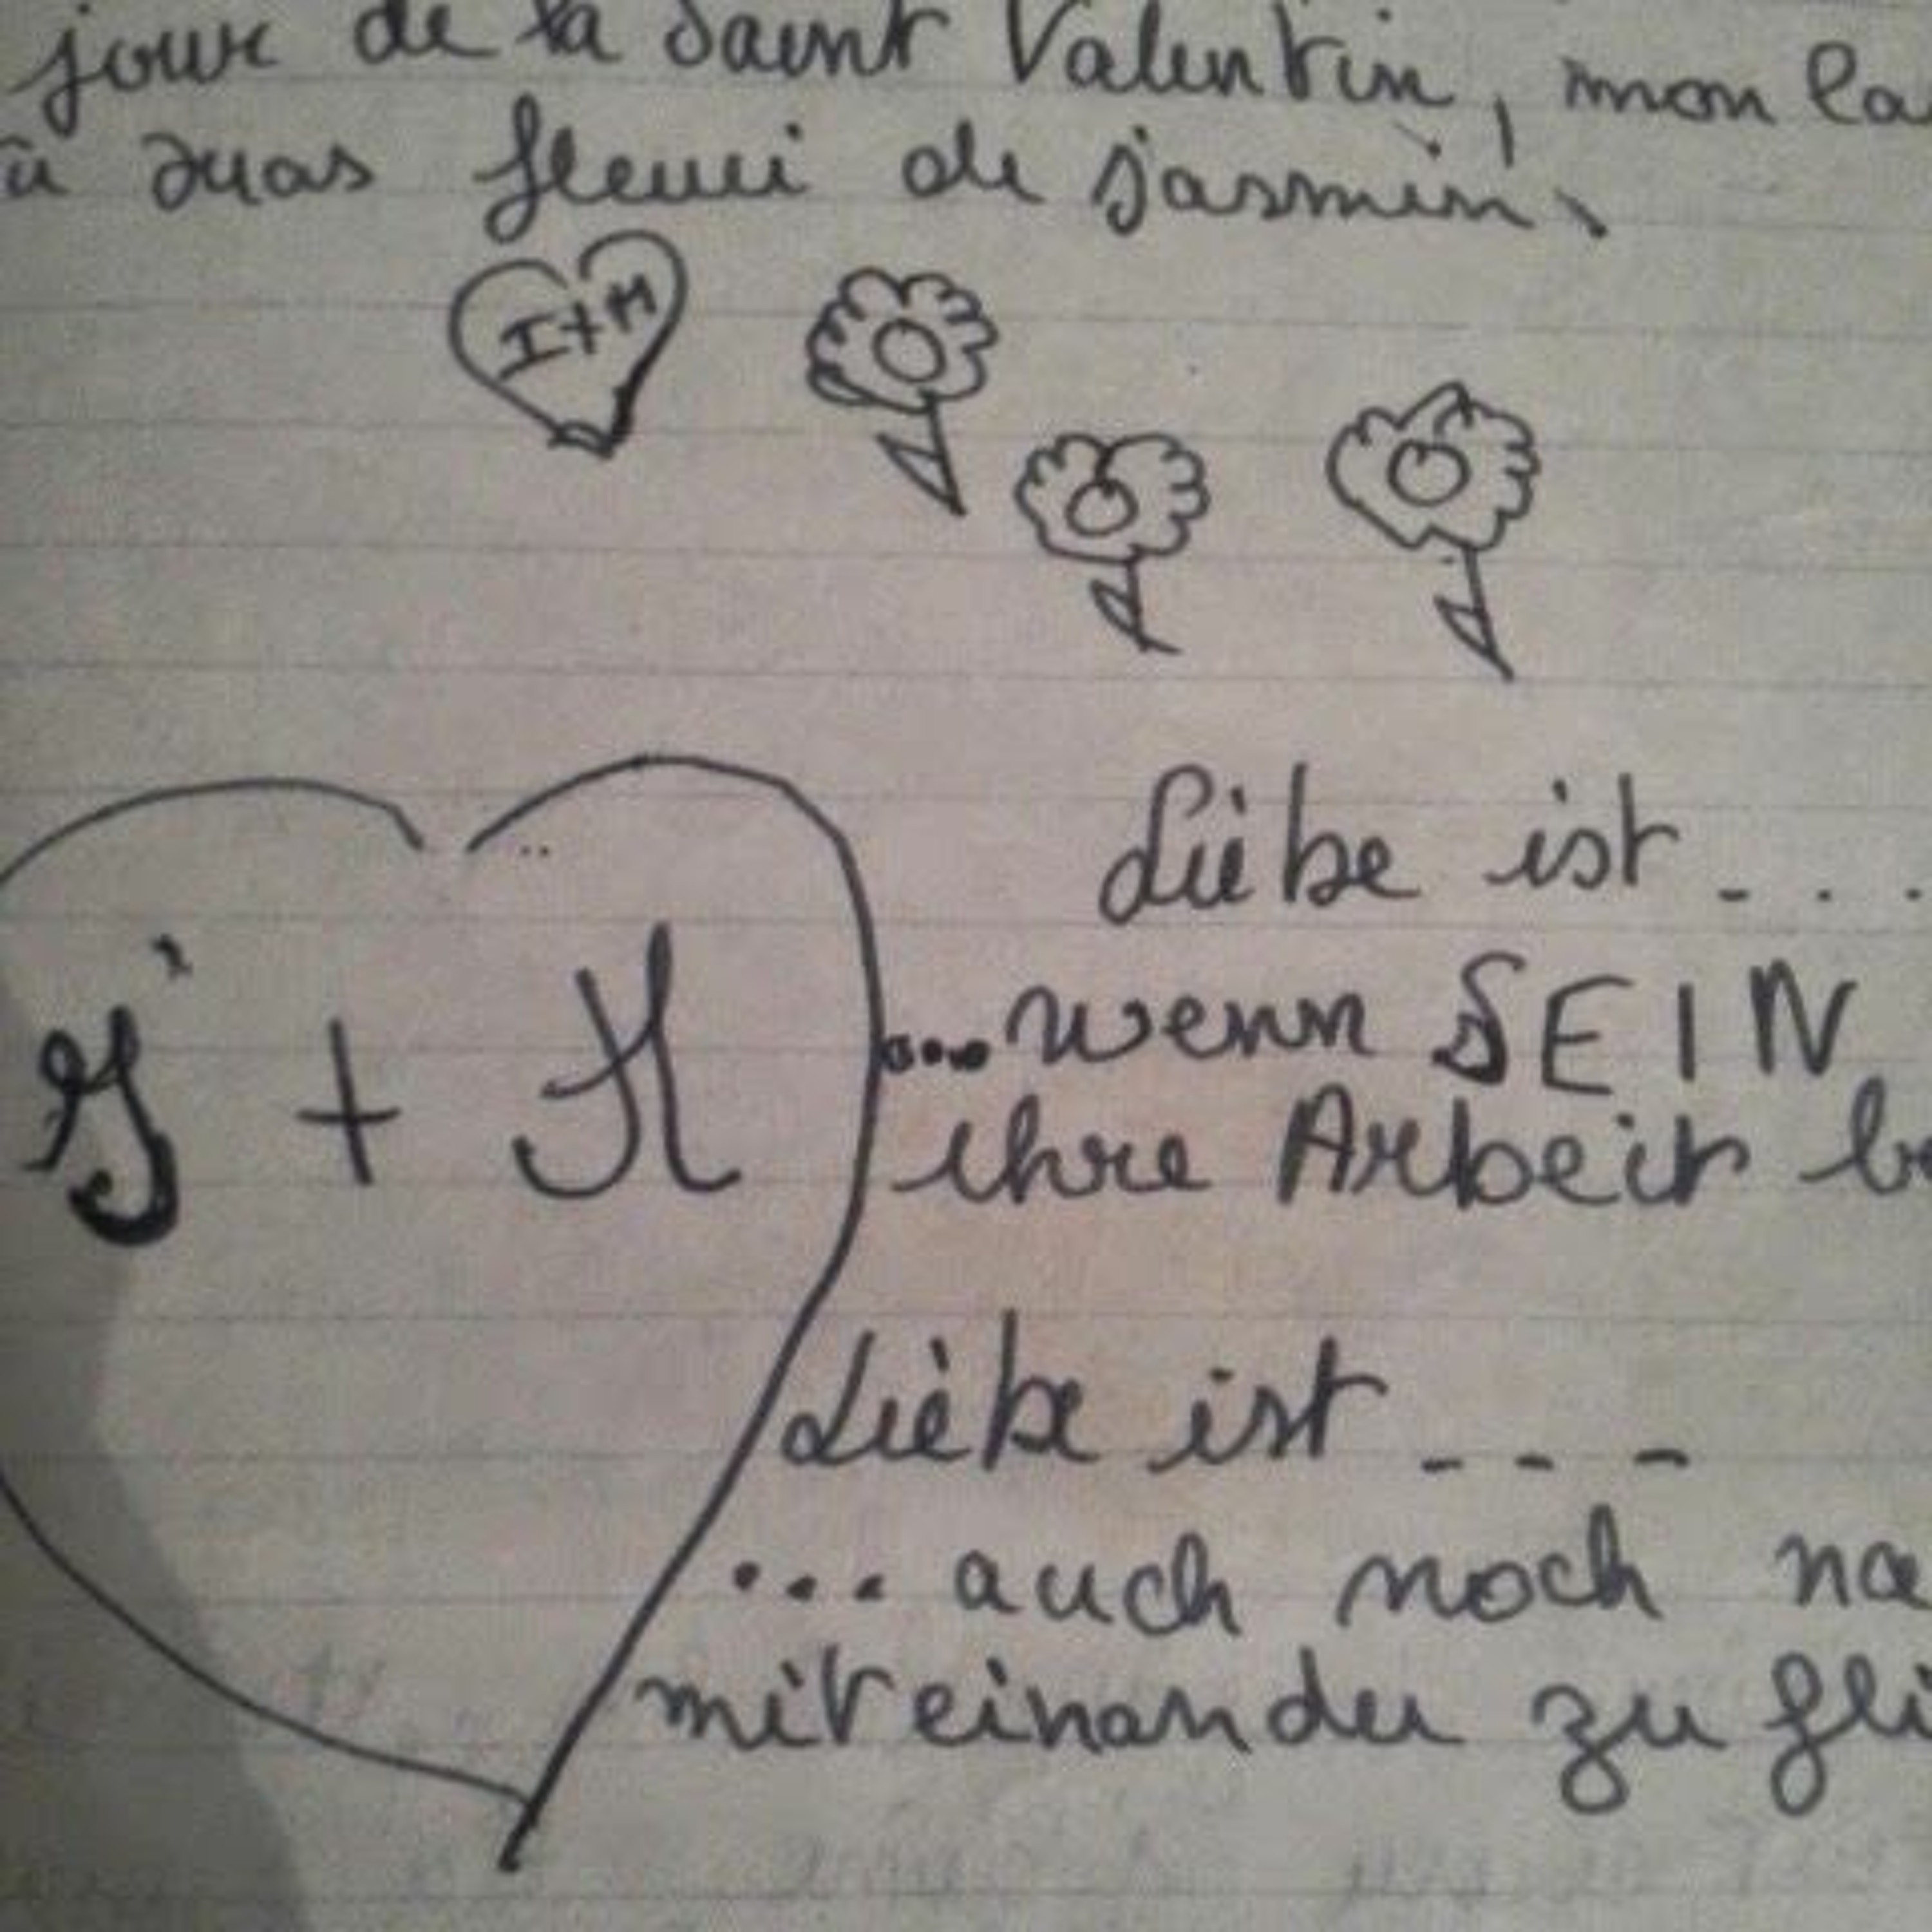 jour de la Saint Valentin, mon la
à duas fleuri de jasmin.
I+M
Liebe ist ...
... wenn SEIN
ihre Arbeit be
Liebe ist ---
... auch noch na
miteinander zu fli